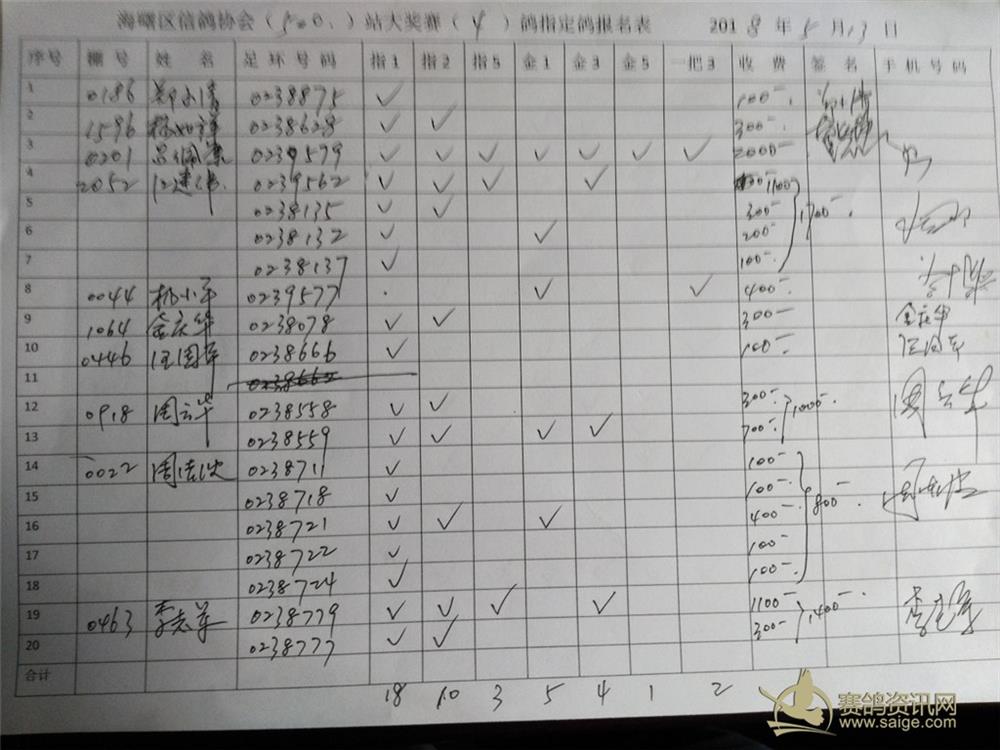 海曙区信鸽协会（500.）站大奖赛（4）鸽指定鸽报名表 2018年5月13日
序号 棚号 姓名 足环号码 指1 指2 指5 金1 金3 金5 一把3 收费 签名 手机号码
1 0186 0238875 ✓ 100-.
2 1596 0238628 ✓ ✓ 300-.
3 0201 0239579 ✓ ✓ ✓ ✓ ✓ ✓ ✓ 2000-
4 2052 江建伟 0239562 ✓ ✓ ✓ ✓ 1100
5 0238135 ✓ ✓ 300- 1700-.
6 0238132 ✓ ✓ 200-
7 0238137 ✓ 100-.
8 0044 杨小平 0239577 . ✓ ✓ 400-.
9 1064 金庆华 0238078 ✓ ✓ 300- 金庆华
10 0446 汪国平 0238666 ✓ 100-.
11
12 0918 周云华 0238558 ✓ ✓ 300- 1000-. 周云华
13 0238559 ✓ ✓ ✓ ✓ 700-.
14 0022 0238711 ✓ 100-
15 0238718 ✓ 100-. 800-.
16 0238721 ✓ ✓ ✓ 400-.
17 0238722 ✓ 100-
18 0238724 ✓ 100-.
19 0463 0238779 ✓ ✓ ✓ ✓ 1100- 1400-.
20 0238777 ✓ ✓ 300-
合计
18 10 3 5 4 1 2
赛鸽资讯网
www.saige.com